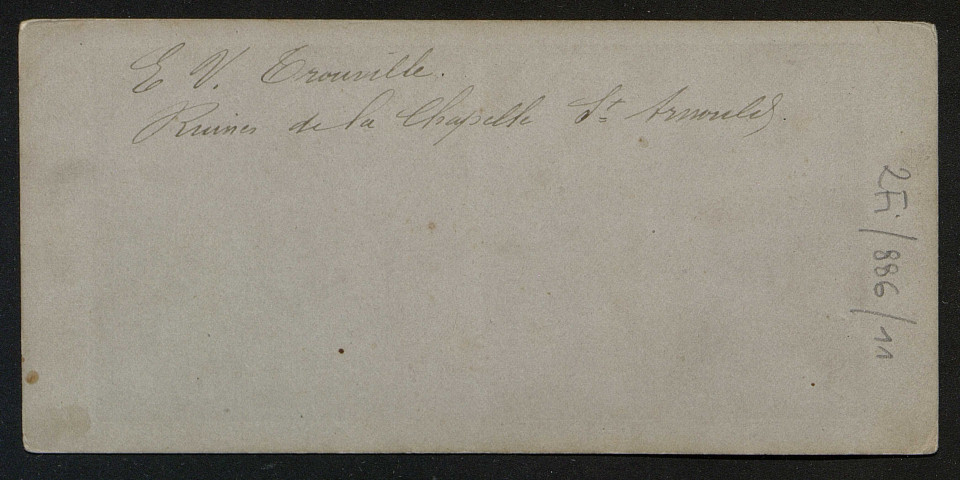 E V. Trouville.
Ruines de la Chapelle St Arnould.
2Fi/886/11